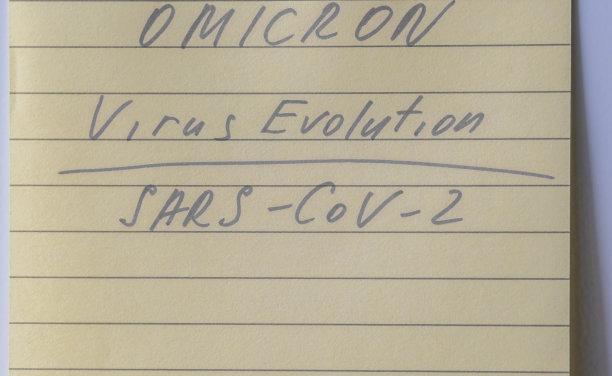 OMICRON
Virus Evolution
SARS-CoV-2